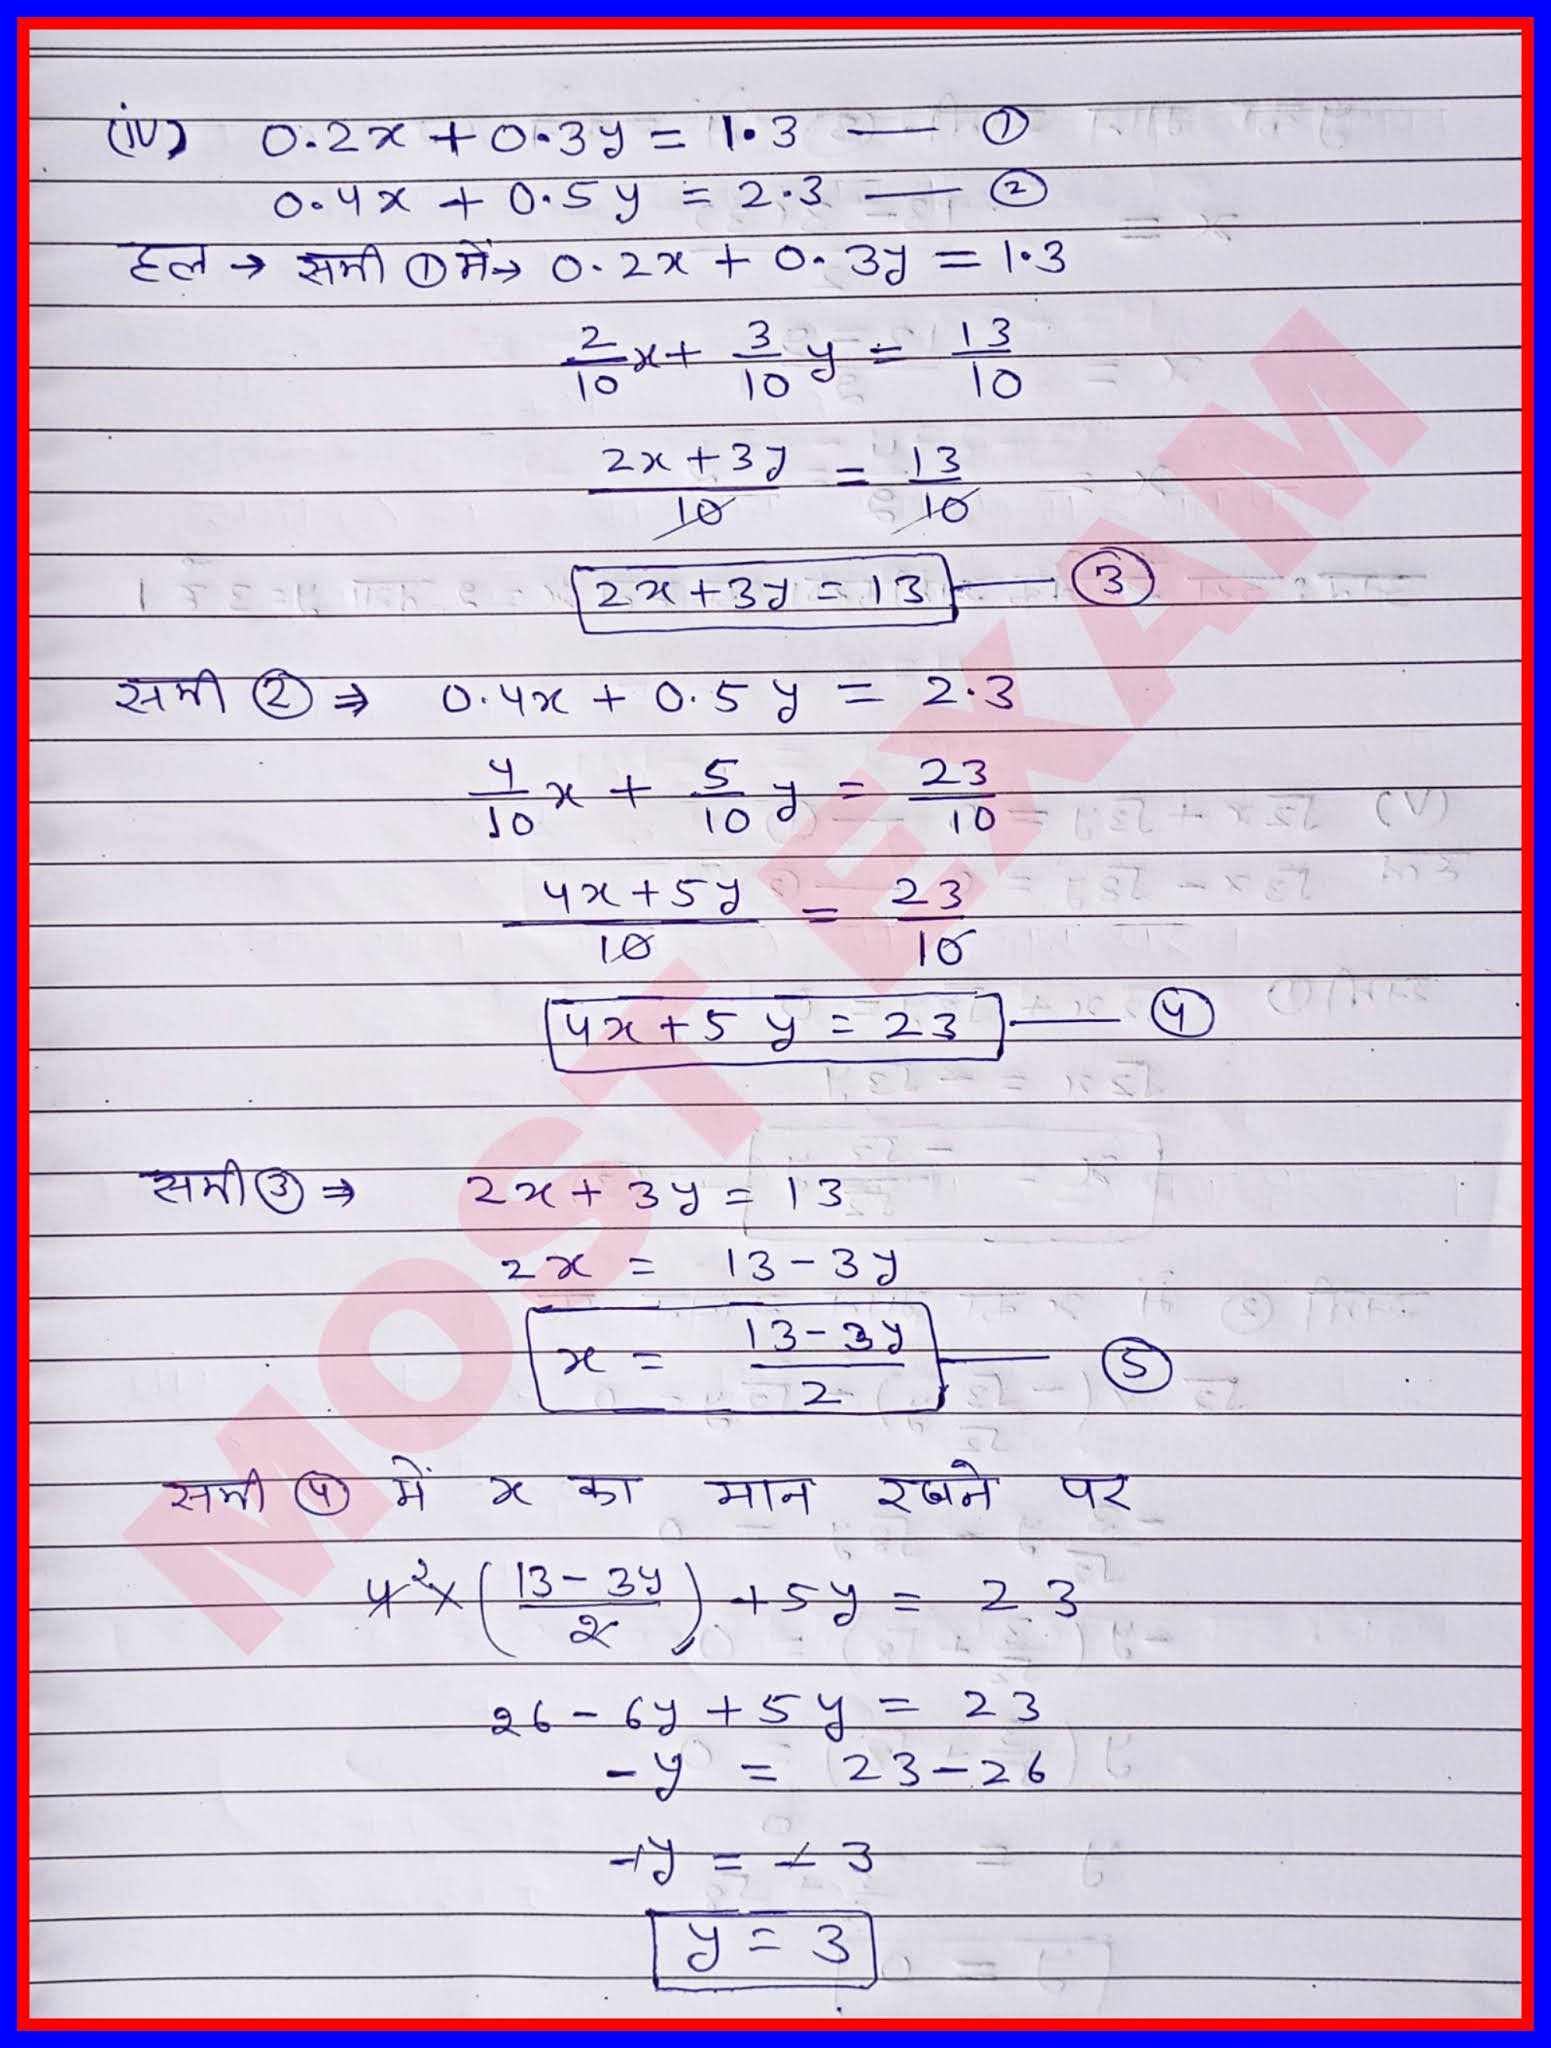 (iv) 0.2x + 0.3y = 1.3 — ①
0.4x + 0.5y = 2.3 — ②
हल → समी ① में → 0.2x + 0.3y = 1.3
2/10 x + 3/10 y = 13/10
2x + 3y / 10 = 13/10
2x + 3y = 13 — ③
समी ② ⇒ 0.4x + 0.5y = 2.3
4/10 x + 5/10 y = 23/10
4x + 5y / 10 = 23/10
4x + 5y = 23 — ④
समी ③ ⇒ 2x + 3y = 13
2x = 13 - 3y
x = 13 - 3y / 2 — ⑤
समी ④ में x का मान रखने पर
4 2 × (13 - 3y / 2) + 5y = 23
26 - 6y + 5y = 23
-y = 23 - 26
-y = -3
y = 3
MOST EXAM